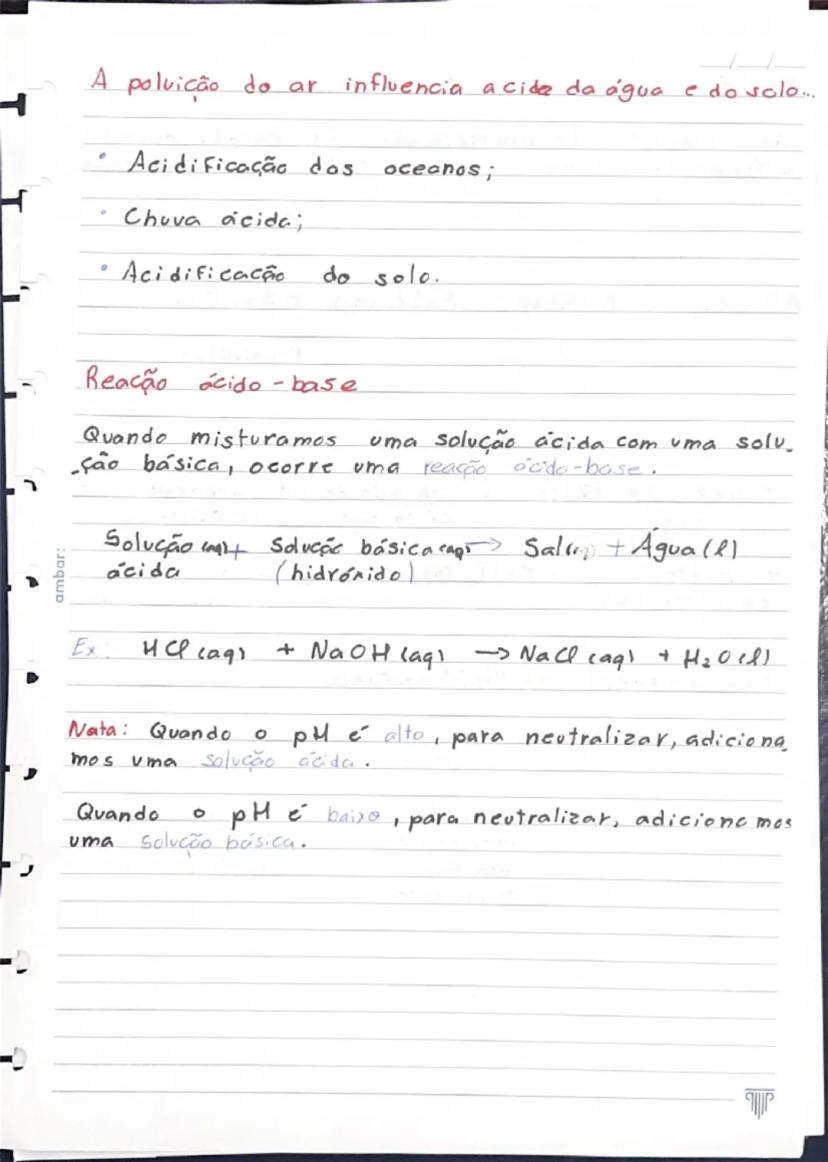 A poluição do ar influencia acide da água e do solo...
• Acidificação dos oceanos;
• Chuva ácida;
• Acidificação do solo.
Reação ácido-base
Quando misturamos uma solução ácida com uma solu-
-ção básica, ocorre uma reação ácido-base.
Solução (aq) + Solução básica (aq) → Sal (aq) + Água (l)
ácida (hidróxido)
Ex. HCl (aq) + NaOH (aq) → NaCl (aq) + H₂O (l)
Nota: Quando o pH é alto, para neutralizar, adiciona
mos uma solução ácida.
Quando o pH é baixo, para neutralizar, adicionamos
uma solução básica.
ambar: